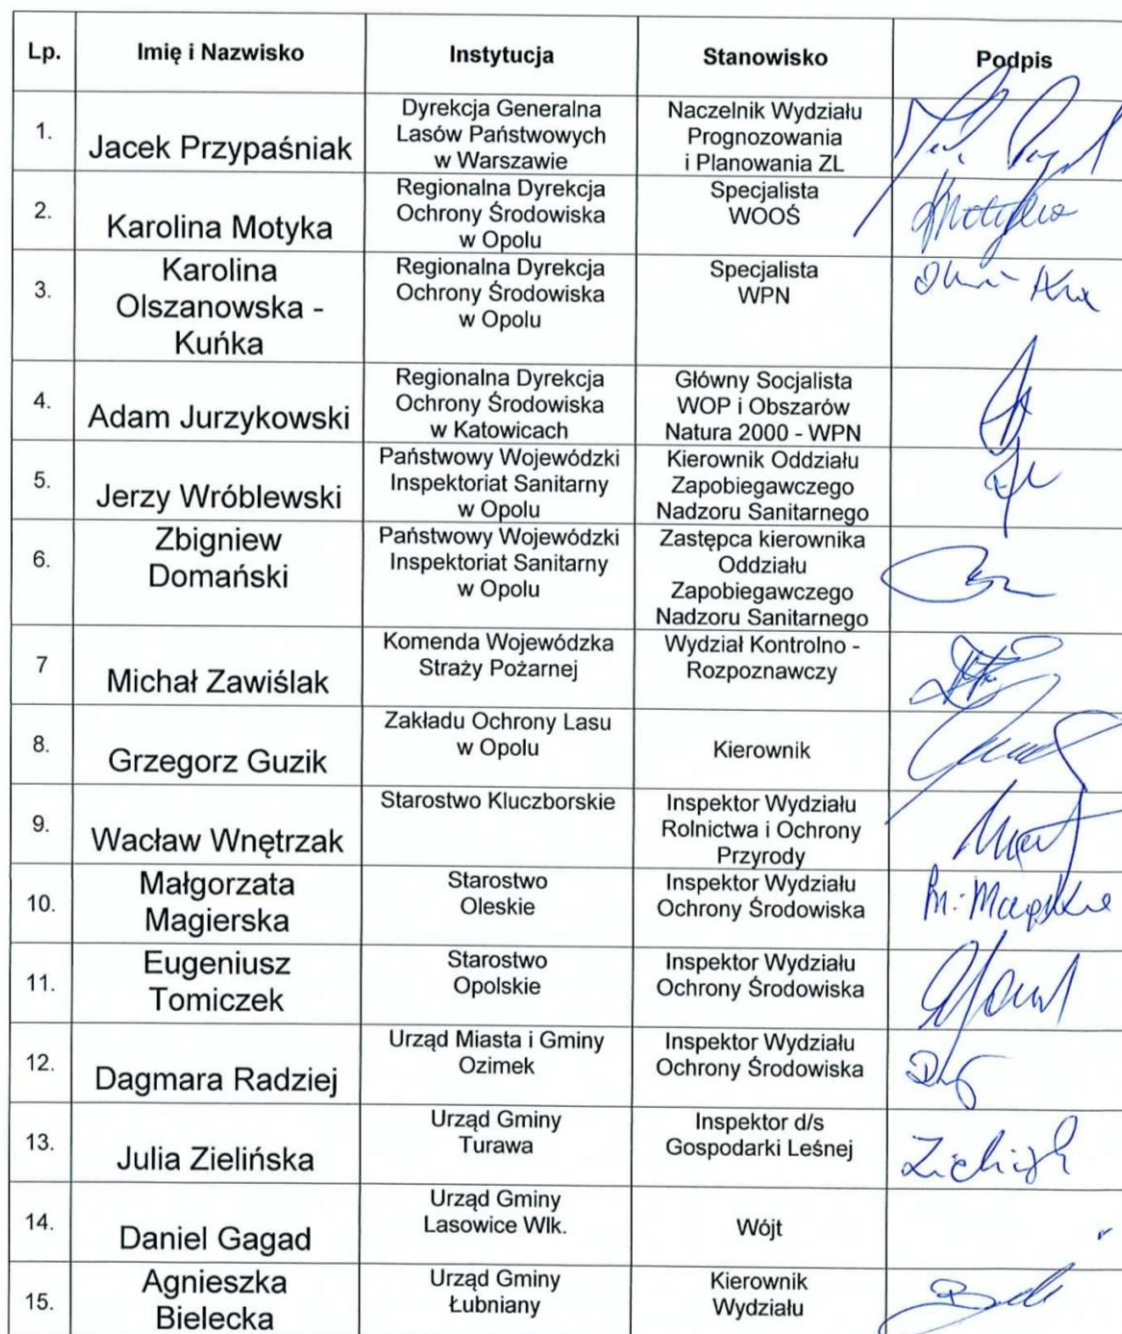 Lp. Imię i Nazwisko Instytucja Stanowisko Podpis
1. Jacek Przypaśniak
Dyrekcja Generalna
Lasów Państwowych
w Warszawie
Naczelnik Wydziału
Prognozowania
i Planowania ZL
2. Karolina Motyka
Regionalna Dyrekcja
Ochrony Środowiska
w Opolu
Specjalista
WOOŚ
3. Karolina
Olszanowska -
Kuńka
Regionalna Dyrekcja
Ochrony Środowiska
w Opolu
Specjalista
WPN
4. Adam Jurzykowski
Regionalna Dyrekcja
Ochrony Środowiska
w Katowicach
Główny Socjalista
WOP i Obszarów
Natura 2000 - WPN
5. Jerzy Wróblewski
Państwowy Wojewódzki
Inspektoriat Sanitarny
w Opolu
Kierownik Oddziału
Zapobiegawczego
Nadzoru Sanitarnego
6. Zbigniew
Domański
Państwowy Wojewódzki
Inspektoriat Sanitarny
w Opolu
Zastępca kierownika
Oddziału
Zapobiegawczego
Nadzoru Sanitarnego
7 Michał Zawiślak
Komenda Wojewódzka
Straży Pożarnej
Wydział Kontrolno -
Rozpoznawczy
8. Grzegorz Guzik
Zakładu Ochrony Lasu
w Opolu
Kierownik
9. Wacław Wnętrzak
Starostwo Kluczborskie
Inspektor Wydziału
Rolnictwa i Ochrony
Przyrody
10. Małgorzata
Magierska
Starostwo
Oleskie
Inspektor Wydziału
Ochrony Środowiska
11. Eugeniusz
Tomiczek
Starostwo
Opolskie
Inspektor Wydziału
Ochrony Środowiska
12. Dagmara Radziej
Urząd Miasta i Gminy
Ozimek
Inspektor Wydziału
Ochrony Środowiska
13. Julia Zielińska
Urząd Gminy
Turawa
Inspektor d/s
Gospodarki Leśnej
14. Daniel Gagad
Urząd Gminy
Lasowice Wlk.
Wójt
15. Agnieszka
Bielecka
Urząd Gminy
Łubniany
Kierownik
Wydziału